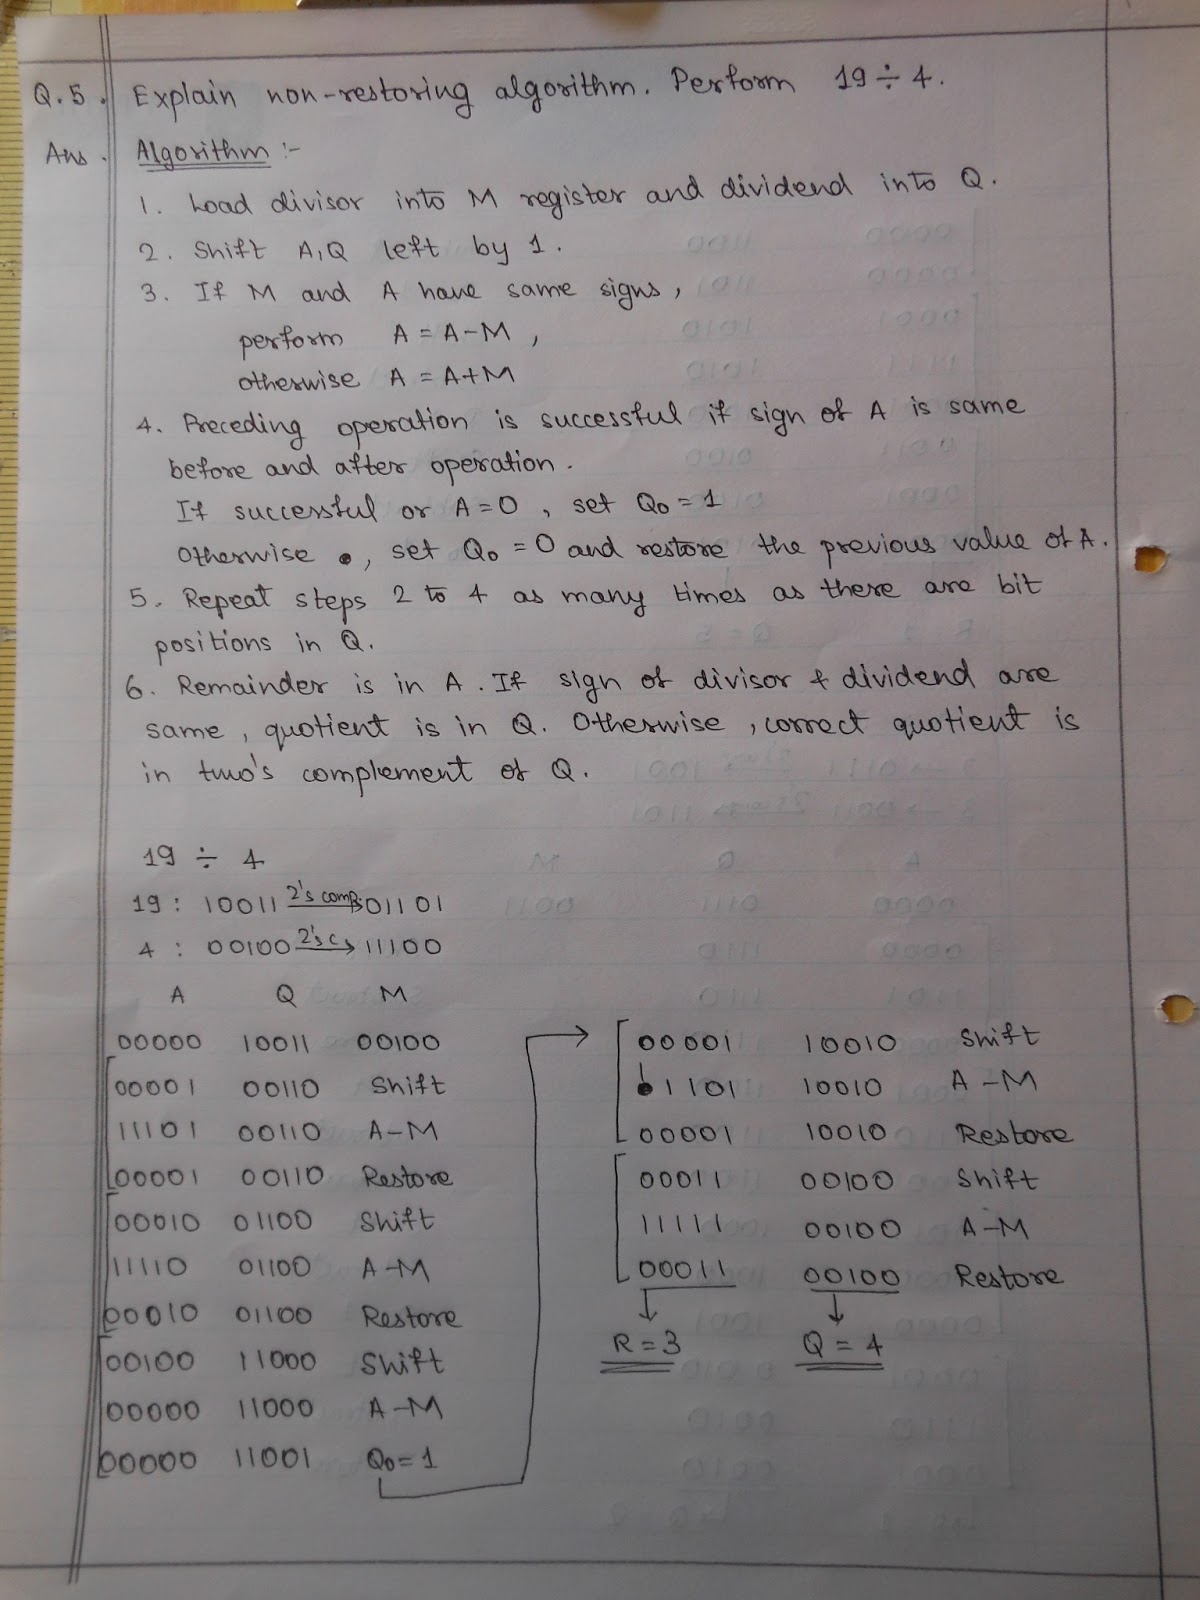 Q.5. Explain non-restoring algorithm. Perform 19 ÷ 4.
Ans. Algorithm :-
1. Load divisor into M register and dividend into Q.
2. Shift A,Q left by 1.
3. If M and A have same signs,
perform A = A-M,
otherwise A = A+M
4. Preceding operation is successful if sign of A is same
before and after operation.
If successful or A=0, set Q0 = 1
Otherwise, set Q0 = 0 and restore the previous value of A.
5. Repeat steps 2 to 4 as many times as there are bit
positions in Q.
6. Remainder is in A. If sign of divisor & dividend are
same, quotient is in Q. Otherwise, correct quotient is
in two's complement of Q.
19 ÷ 4
19 : 10011 2's comp. → 01101
4 : 00100 2's c → 11100
A Q M
00000 10011 00100
00001 00110 Shift
11101 00110 A-M
00001 00110 Restore
00010 01100 Shift
11110 01100 A-M
00010 01100 Restore
00100 11000 Shift
00000 11000 A-M
00000 11001 Q0=1
00001 10010 Shift
11101 10010 A-M
00001 10010 Restore
00011 00100 Shift
11111 00100 A-M
00011 00100 Restore
R=3 Q=4